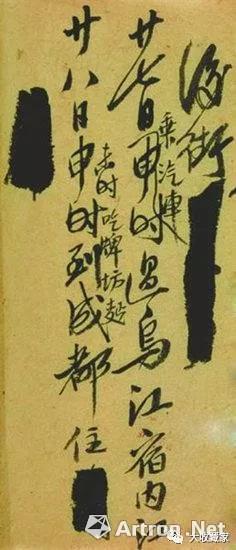 後街
廿七日申時過烏江宿內
乘汽車
廿八日申時到成都住
未時吃牌坊
Artron.Net
大收藏家